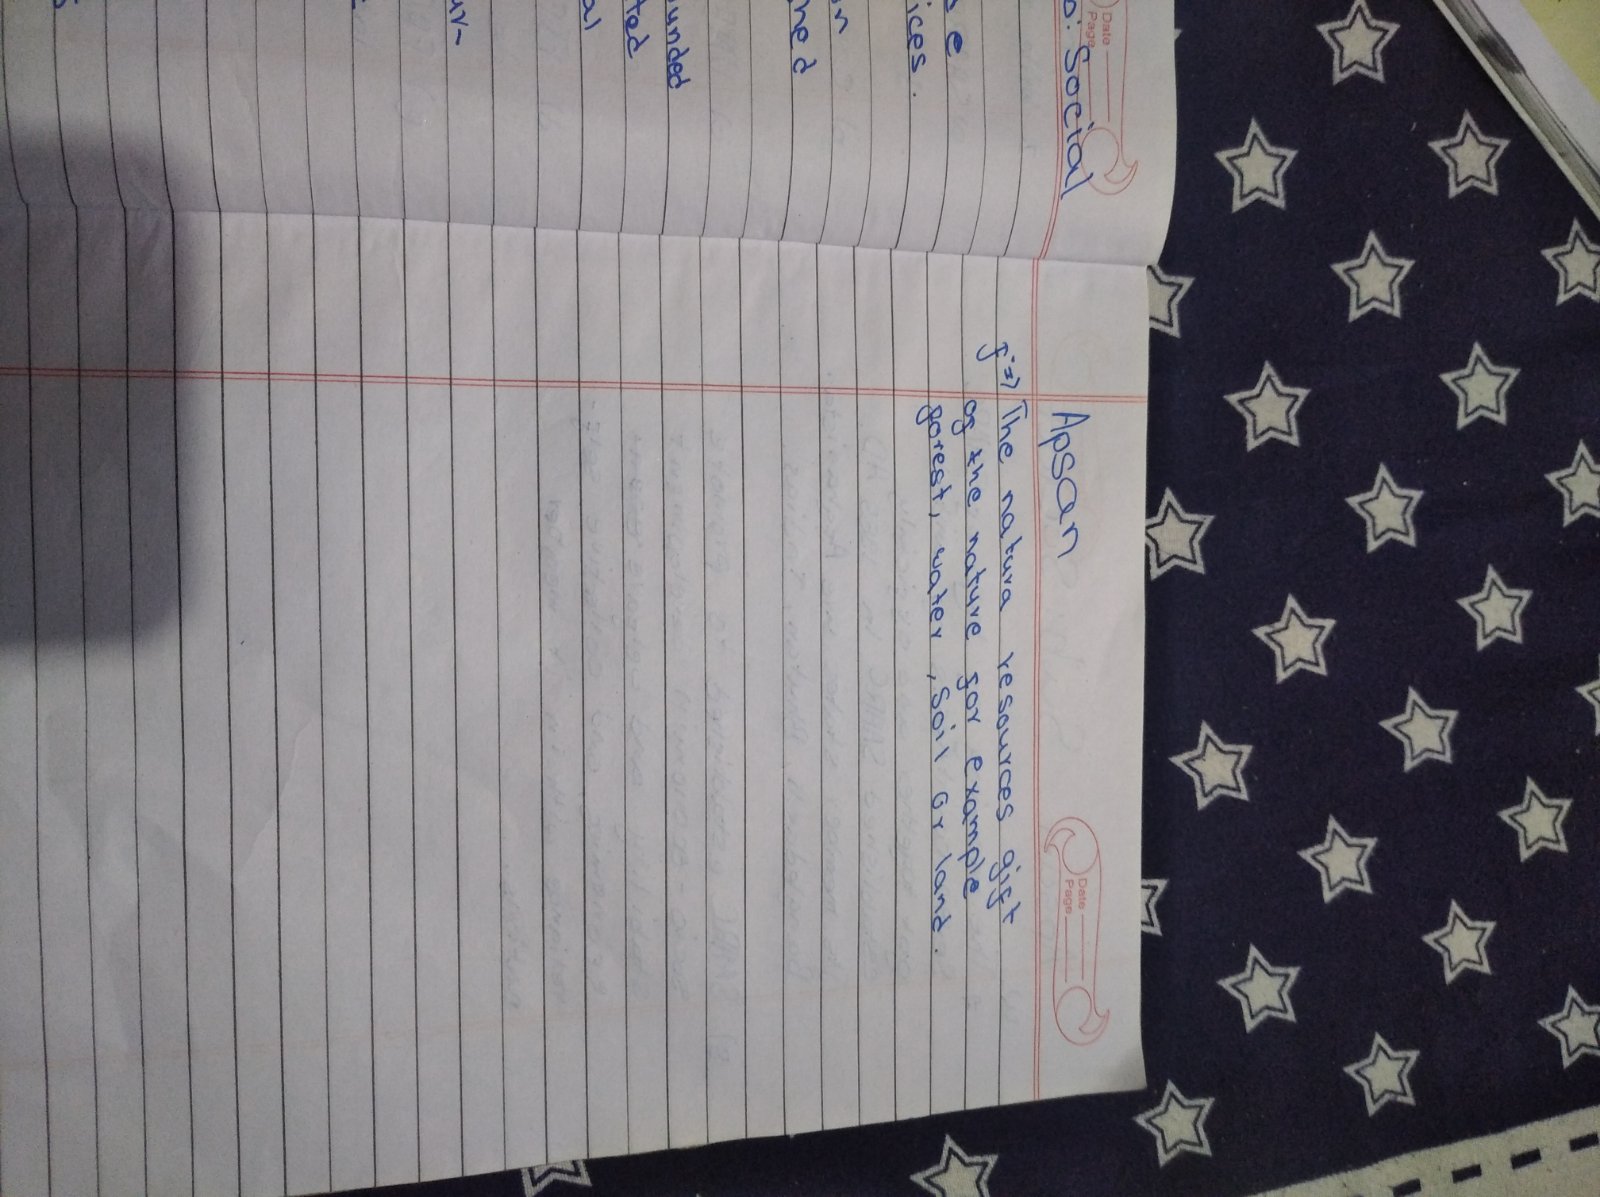 Date
Page
o: Social
s e
ices.
n
ned
unded
ted
al
ur-
Apsan
Date
Page
f⇒) The natura resources gift
of the nature for example
forest, water, soil or land.